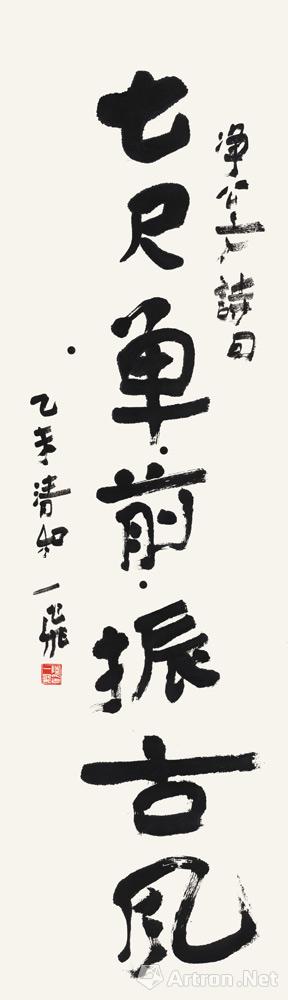 净公上人詩曰
七尺单前振古风
乙未清和 一飛
Artron.Net